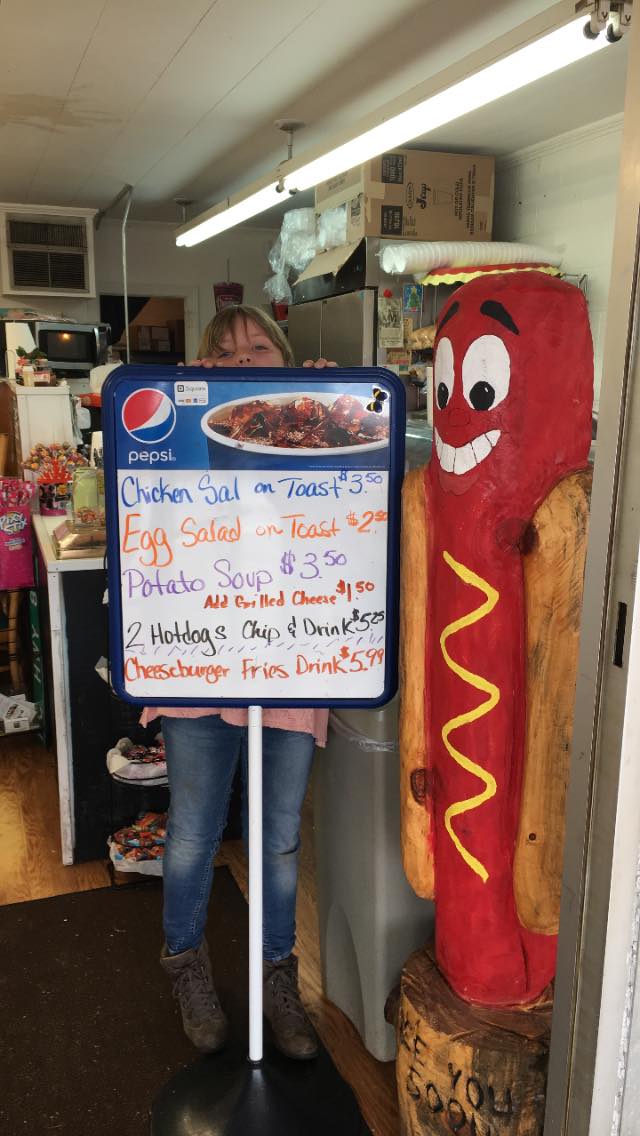 Square
pepsi
Chicken Sal on Toast $3.50
Egg Salad on Toast $2.50
Potato Soup $3.50
Add Grilled Cheese $1.50
2 Hotdogs Chip & Drink $5.25
Cheeseburger Fries Drink $5.99
PIXY
STIX
YOU
SOON